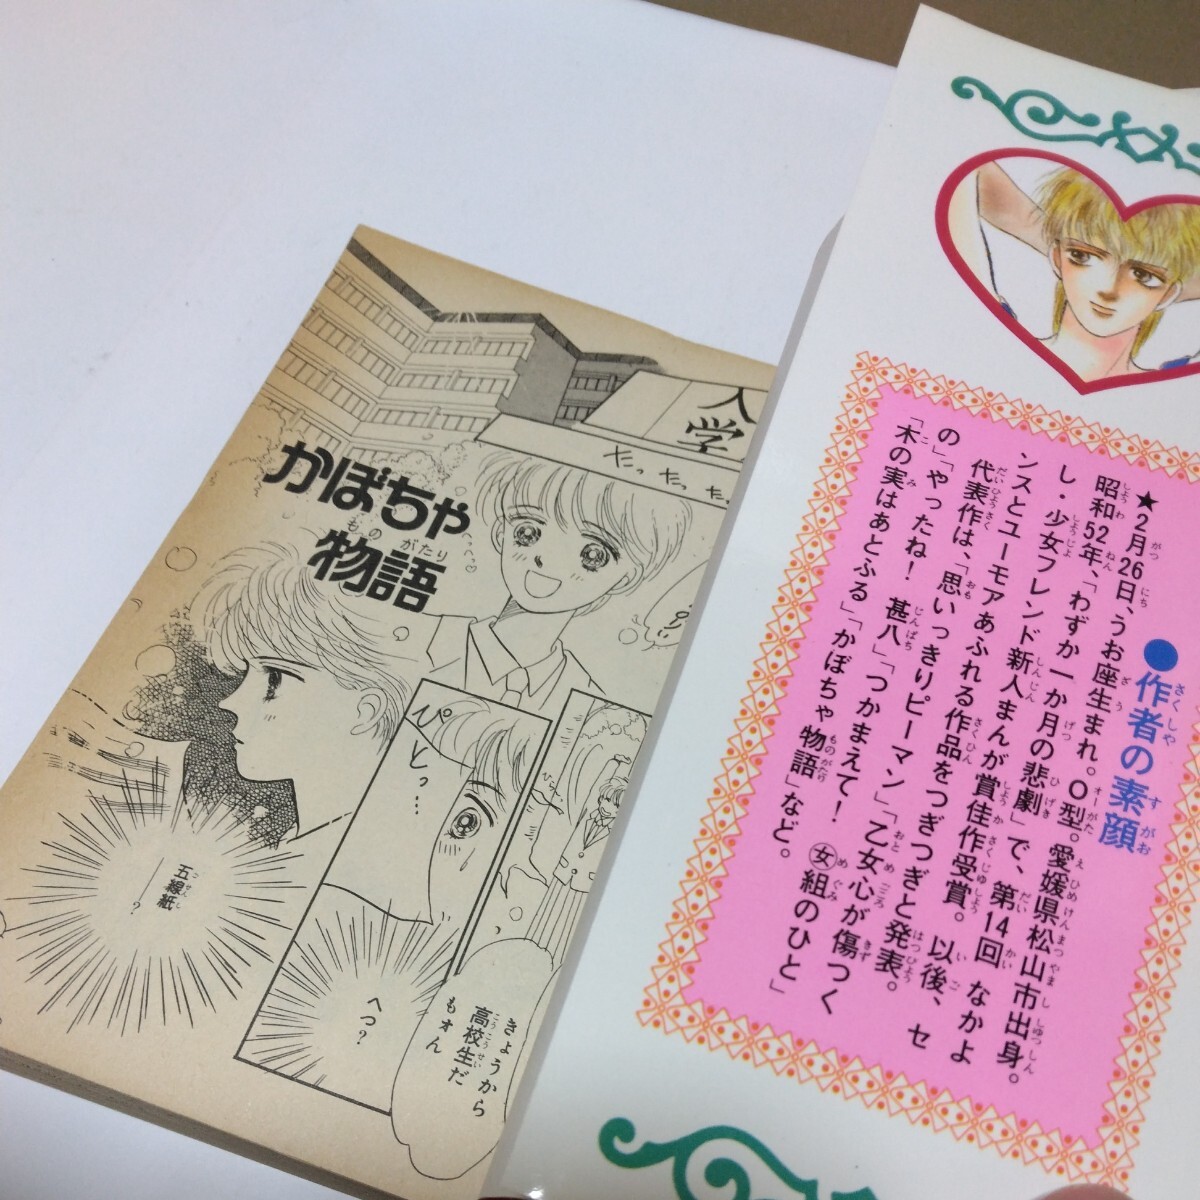 ●作者の素顔
さくしゃ すがお
★2月26日、うお座生まれ。O型。愛媛県松山市出身。
昭和52年、「わずか一か月の悲劇」で、第14回 なかよ
し・少女フレンド新人まんが賞佳作受賞。以後、セ
ンスとユーモアあふれる作品をつぎつぎと発表。
代表作は、「思いっきりピーマン」「乙女心が傷つく
の」「やったね! 甚八」「つかまえて! ㊛組のひと」
「木の実はあとふる」「かぼちゃ物語」など。
入学
たっ たっ たっ
かぼちゃ
物語
ものがたり
ぴとっ…
五線紙
ごせんし
―?
へっ?
きょうから
高校生だ
こうこうせい
もォん